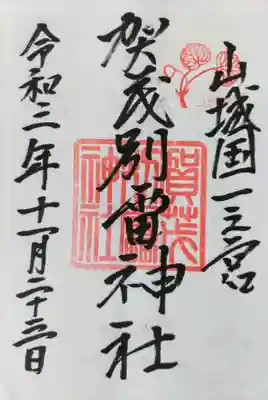 山城国一之宮
賀茂別雷神社
令和三年十一月二十三日
賀茂
別雷
神社